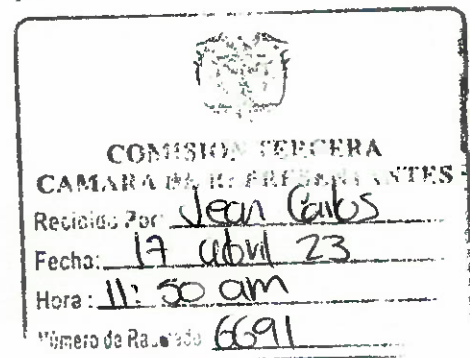 COMISION TERCERA
CAMARA DE REPRESENTANTES
Recibido Por: Jean Carlos
Fecha: 17 abril 23
Hora: 11:50 am
Número de Radicado 6691